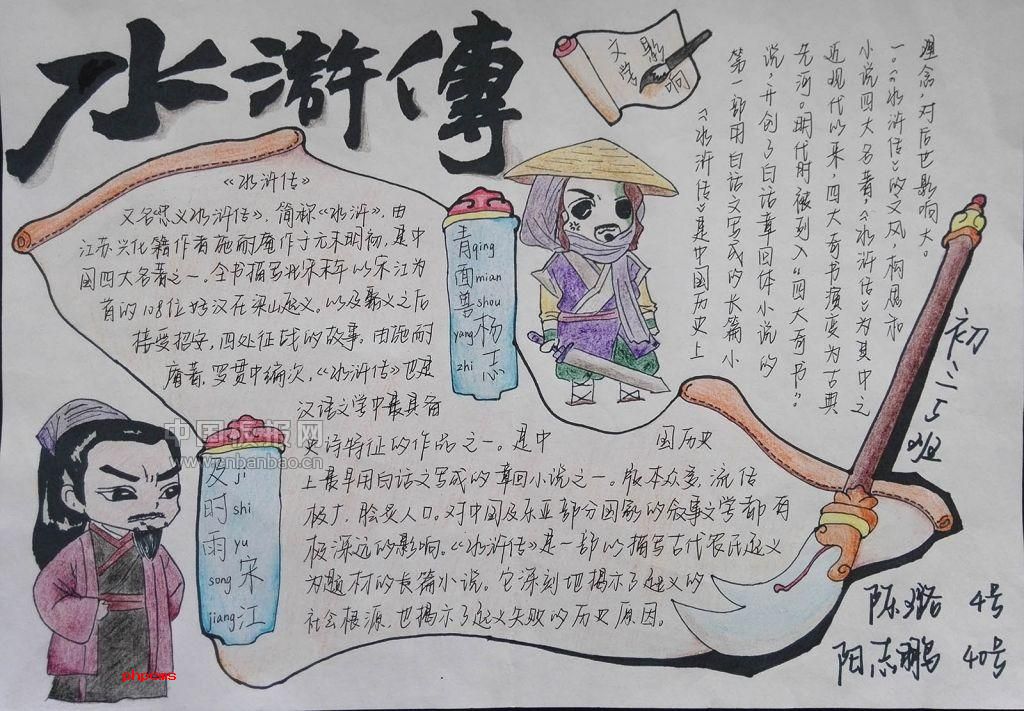 水滸傳
《水浒传》
又名《忠义水浒传》，简称《水浒》，由
江苏兴化籍作者施耐庵作于元末明初，是中
国四大名著之一。全书描写北宋末年以宋江为
首的108位好汉在梁山起义。以及聚义之后
接受招安，四处征战的故事。由施耐
庵著，罗贯中编次，《水浒传》也是
汉语文学中最具备
史诗特征的作品之一。是中国历史
上最早用白话文写成的章回小说之一。版本众多，流传
极广，脍炙人口。对中国及东亚部分国家的叙事文学都有
极深远的影响。《水浒传》是一部以描写古代农民起义
为题材的长篇小说。它深刻地揭示了起义的
社会根源，也揭示了起义失败的历史原因。
青qing
面mian
兽shou
yang杨
zhi志
及ji
时shi
雨yu
song宋
jiang江
文学影响
《水浒传》是中国历史上
第一部用白话文写成的长篇小
说，开创了白话章回体小说的
先河。明代时被列入“四大奇书”
近现代以来，四大奇书演变为古典
小说四大名著，《水浒传》为其中之
一。《水浒传》的文风，构思和
理念，对后世影响大。
初二5班
陈璐 4号
阳志鹏 40号
中国板报网
www.cnbanbao.cn
phpcms